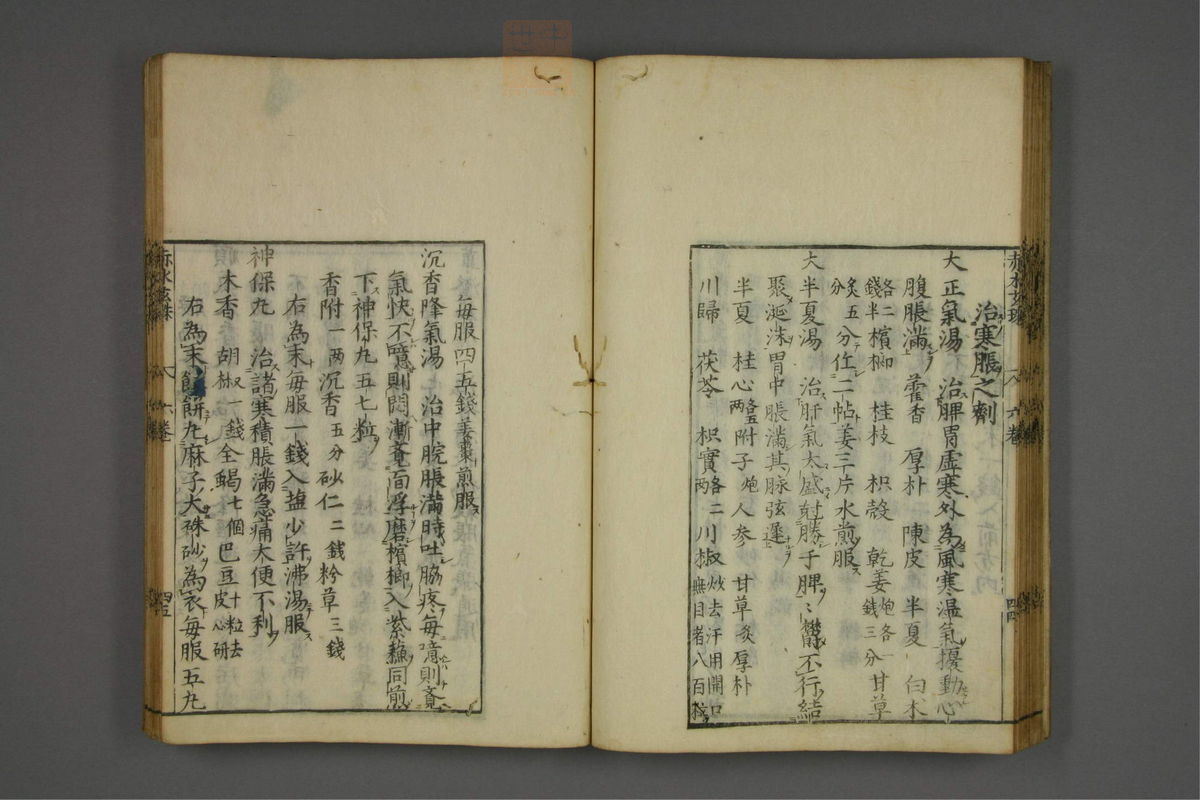 治寒脹之劑
大正氣湯　治脾胃虛寒外為風寒濕氣擾動心
腹脹滿　藿香　厚朴　陳皮　半夏　白术
各二錢半檳榔　桂枝　枳殼　乾姜炮各一錢三分甘草
炙五分作二帖姜三片水煎服
大半夏湯　治肝氣太盛尅勝于脾〻鬱不行結
聚涎沫胃中脹滿其脉弦遲
半夏　桂心各五兩附子炮人参　甘草炙厚朴
川歸　茯苓　枳實各二兩川椒炒去汗用開口無目者八百粒
每服四五錢姜棗煎服
沉香降氣湯　治中脘脹滿時吐脇疼每噫則覺
氣快不噫則悶漸覚面浮磨檳榔入紫蘓同煎
下神保九五七粒
香附一兩沉香五分砂仁二錢粉草三錢
右為末每服一錢入盐少許沸湯服
神保九　治諸寒積脹滿急痛大便不利
木香　胡椒一錢全蝎七個巴豆十粒去皮心研
右為末　餅九麻子大硃砂為衣每服五九
赤水玄珠　六卷　四十四
赤水玄珠　六卷　四五